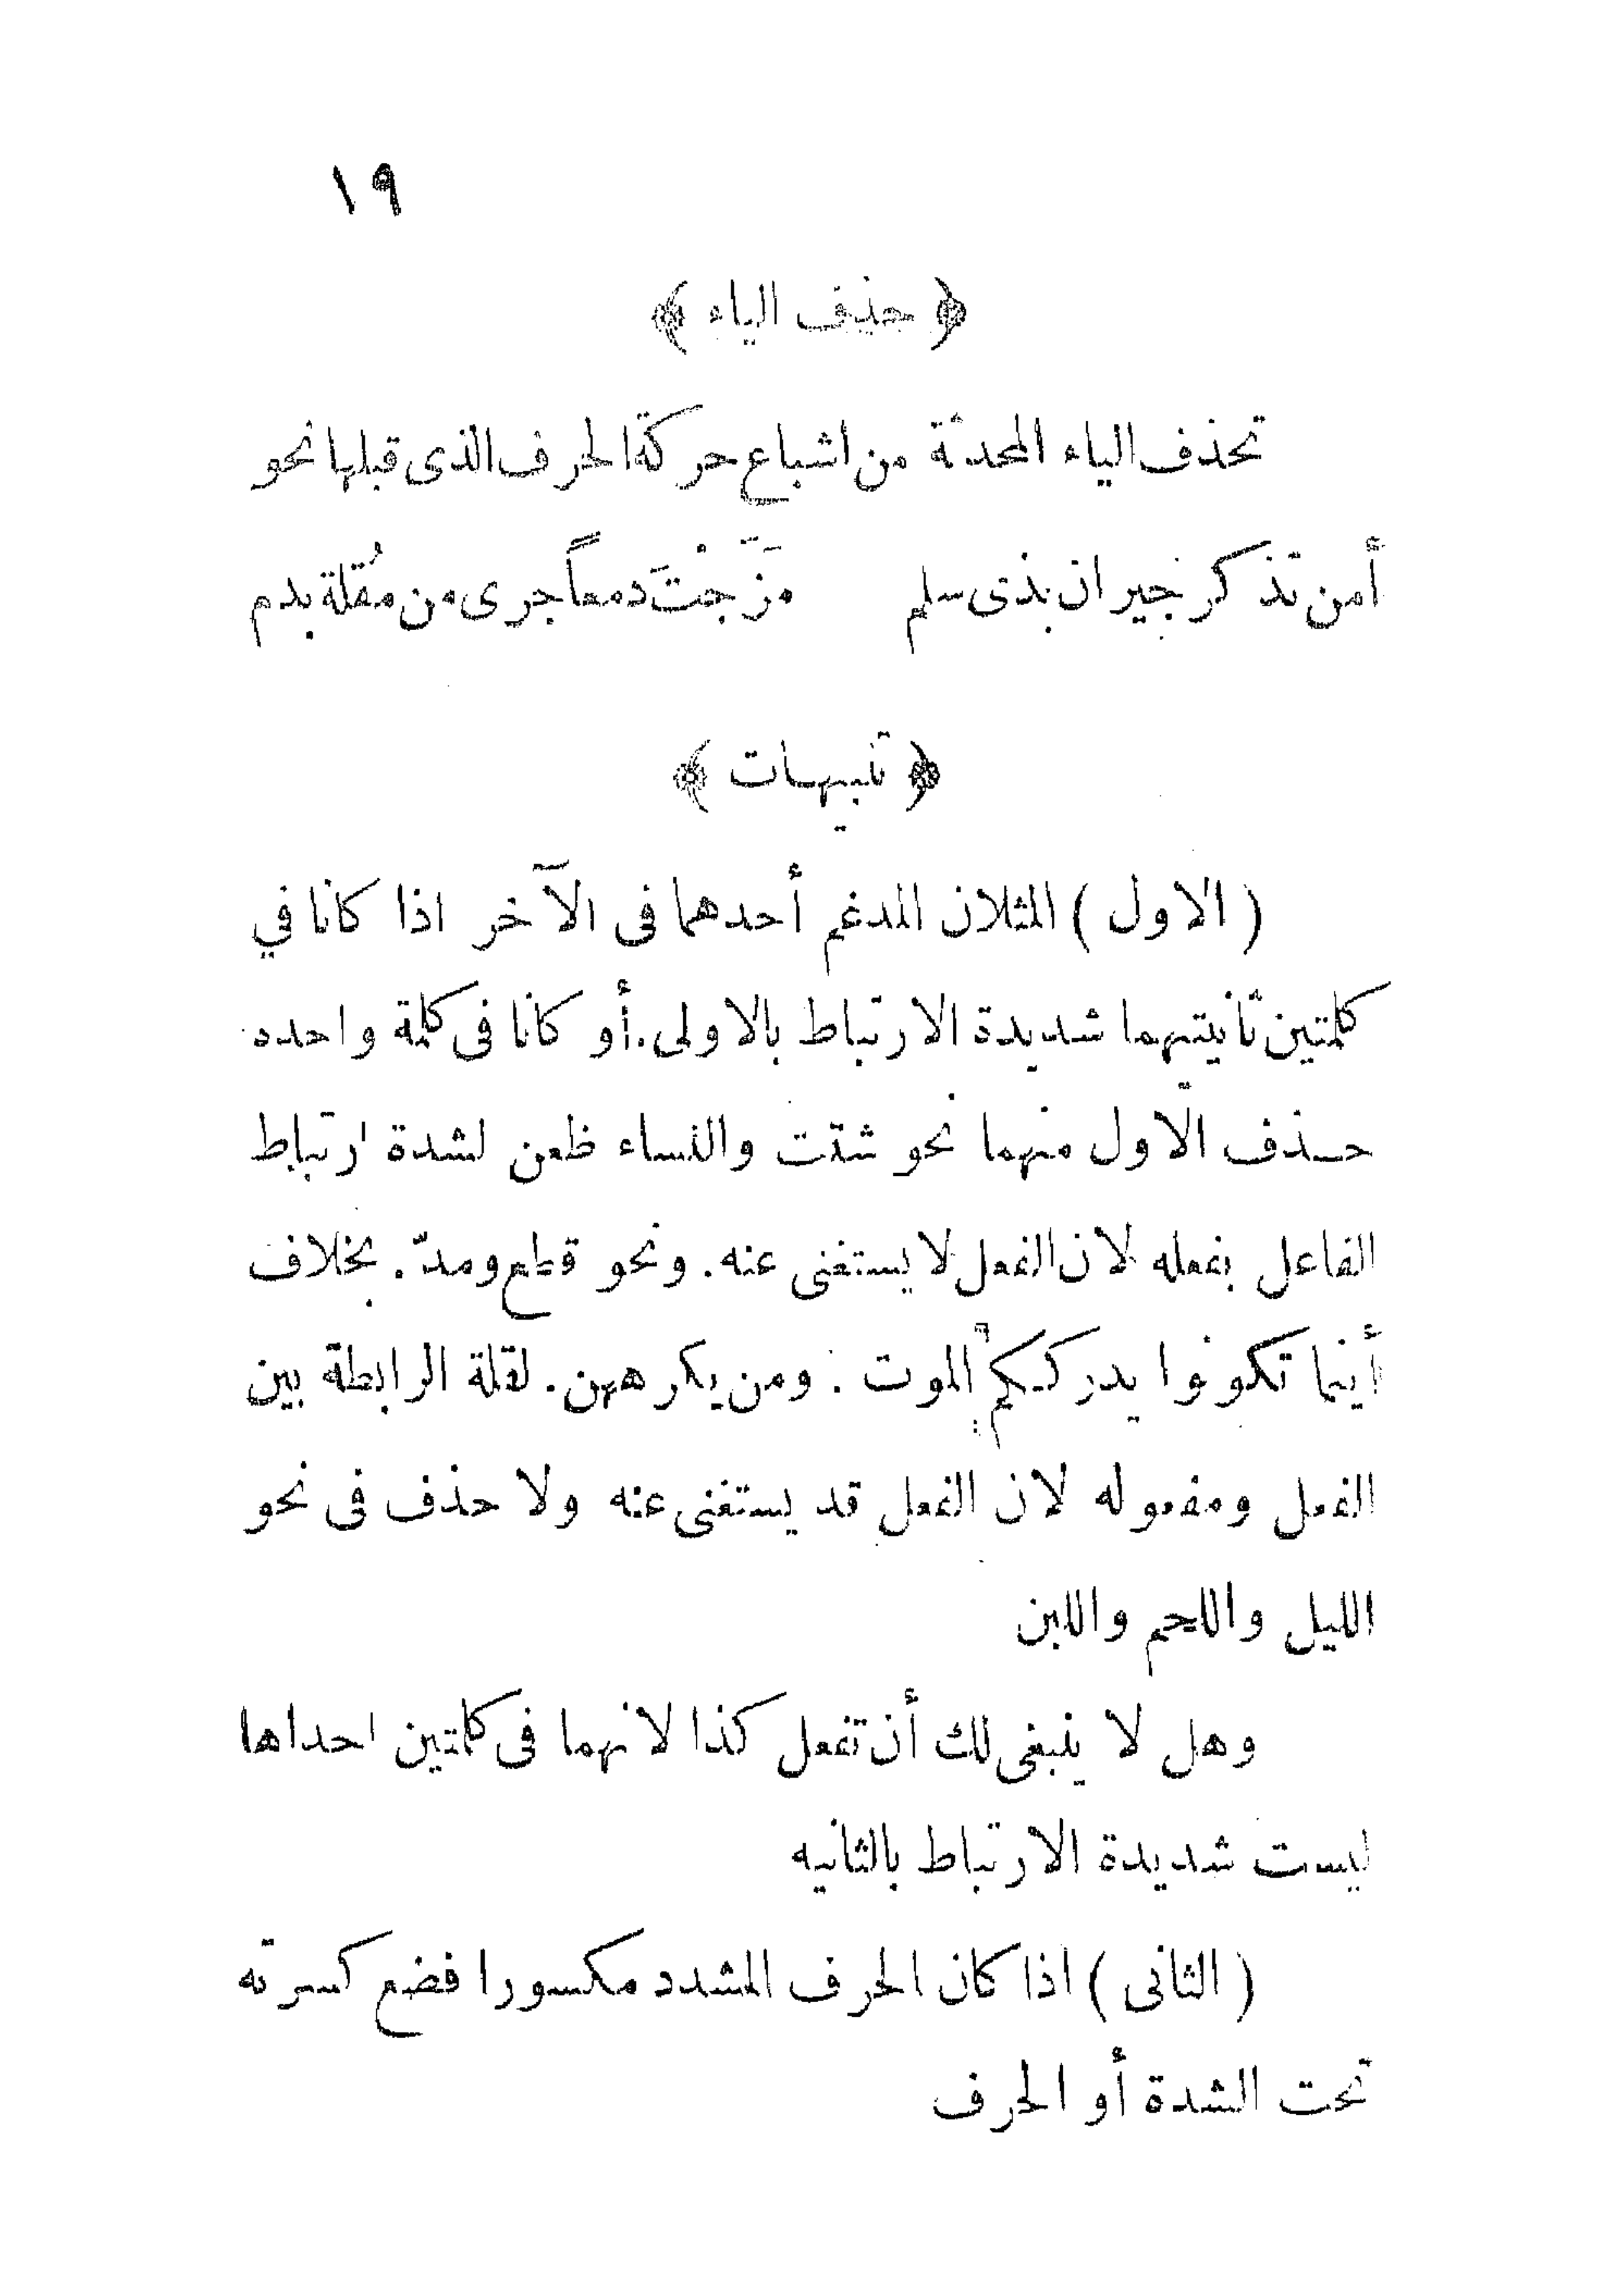 ١٩
﴿ حذف الياء ﴾
تحذف الياء المحدثة من اشباع حركة الحرف الذى قبلها نحو
أمن تذكر جيران بذى سلم مَزَجْتَ دمعاً جرى من مُقلة بدم
﴿ تنبيهات ﴾
( الاول ) المثلان المدغم أحدهما فى الآخر اذا كانا في
كلمتين ثانيتهما شديدة الارتباط بالاولى . أو كانا فى كلمة واحده
حذف الاول منهما نحو شتت والنساء ظعن لشدة ارتباط
الفاعل بفعله لان الفعل لا يستغنى عنه . ونحو قطع ومدّ . بخلاف
أينما تكونوا يدرككم الموت . ومن يكرههن . لقلة الرابطة بين
الفعل ومفعوله لان الفعل قد يستغنى عنه ولا حذف فى نحو
الليل واللحم واللبن
وهل لا ينبغى لك أن تفعل كذا لانهما فى كلمتين احداها
ليست شديدة الارتباط بالثانيه
( الثانى ) اذا كان الحرف المشدد مكسورا فضع كسرته
تحت الشدة أو الحرف